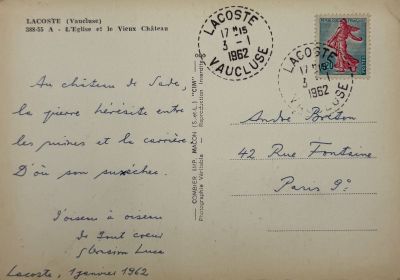 LACOSTE (Vaucluse)
388-55 A - L'Eglise et le Vieux Château
Au château de Sade,
la pierre hérésite entre
les ruines et la carrière
D'où son
d'oiseau à oiseau
de tout coeur
Luca
Lacoste, 1 janvier 1962
COMBIER IMP. MACON (S.-et-L.) "CIM"
Photographie Véritable - Reproduction Interdite
LACOSTE
17 H 15
3 - 1
1962
VAUCLUSE
LACOSTE
17 15
3 1
1962
VAUCLUSE
André Breton
42 Rue Fontaine
Paris 9e